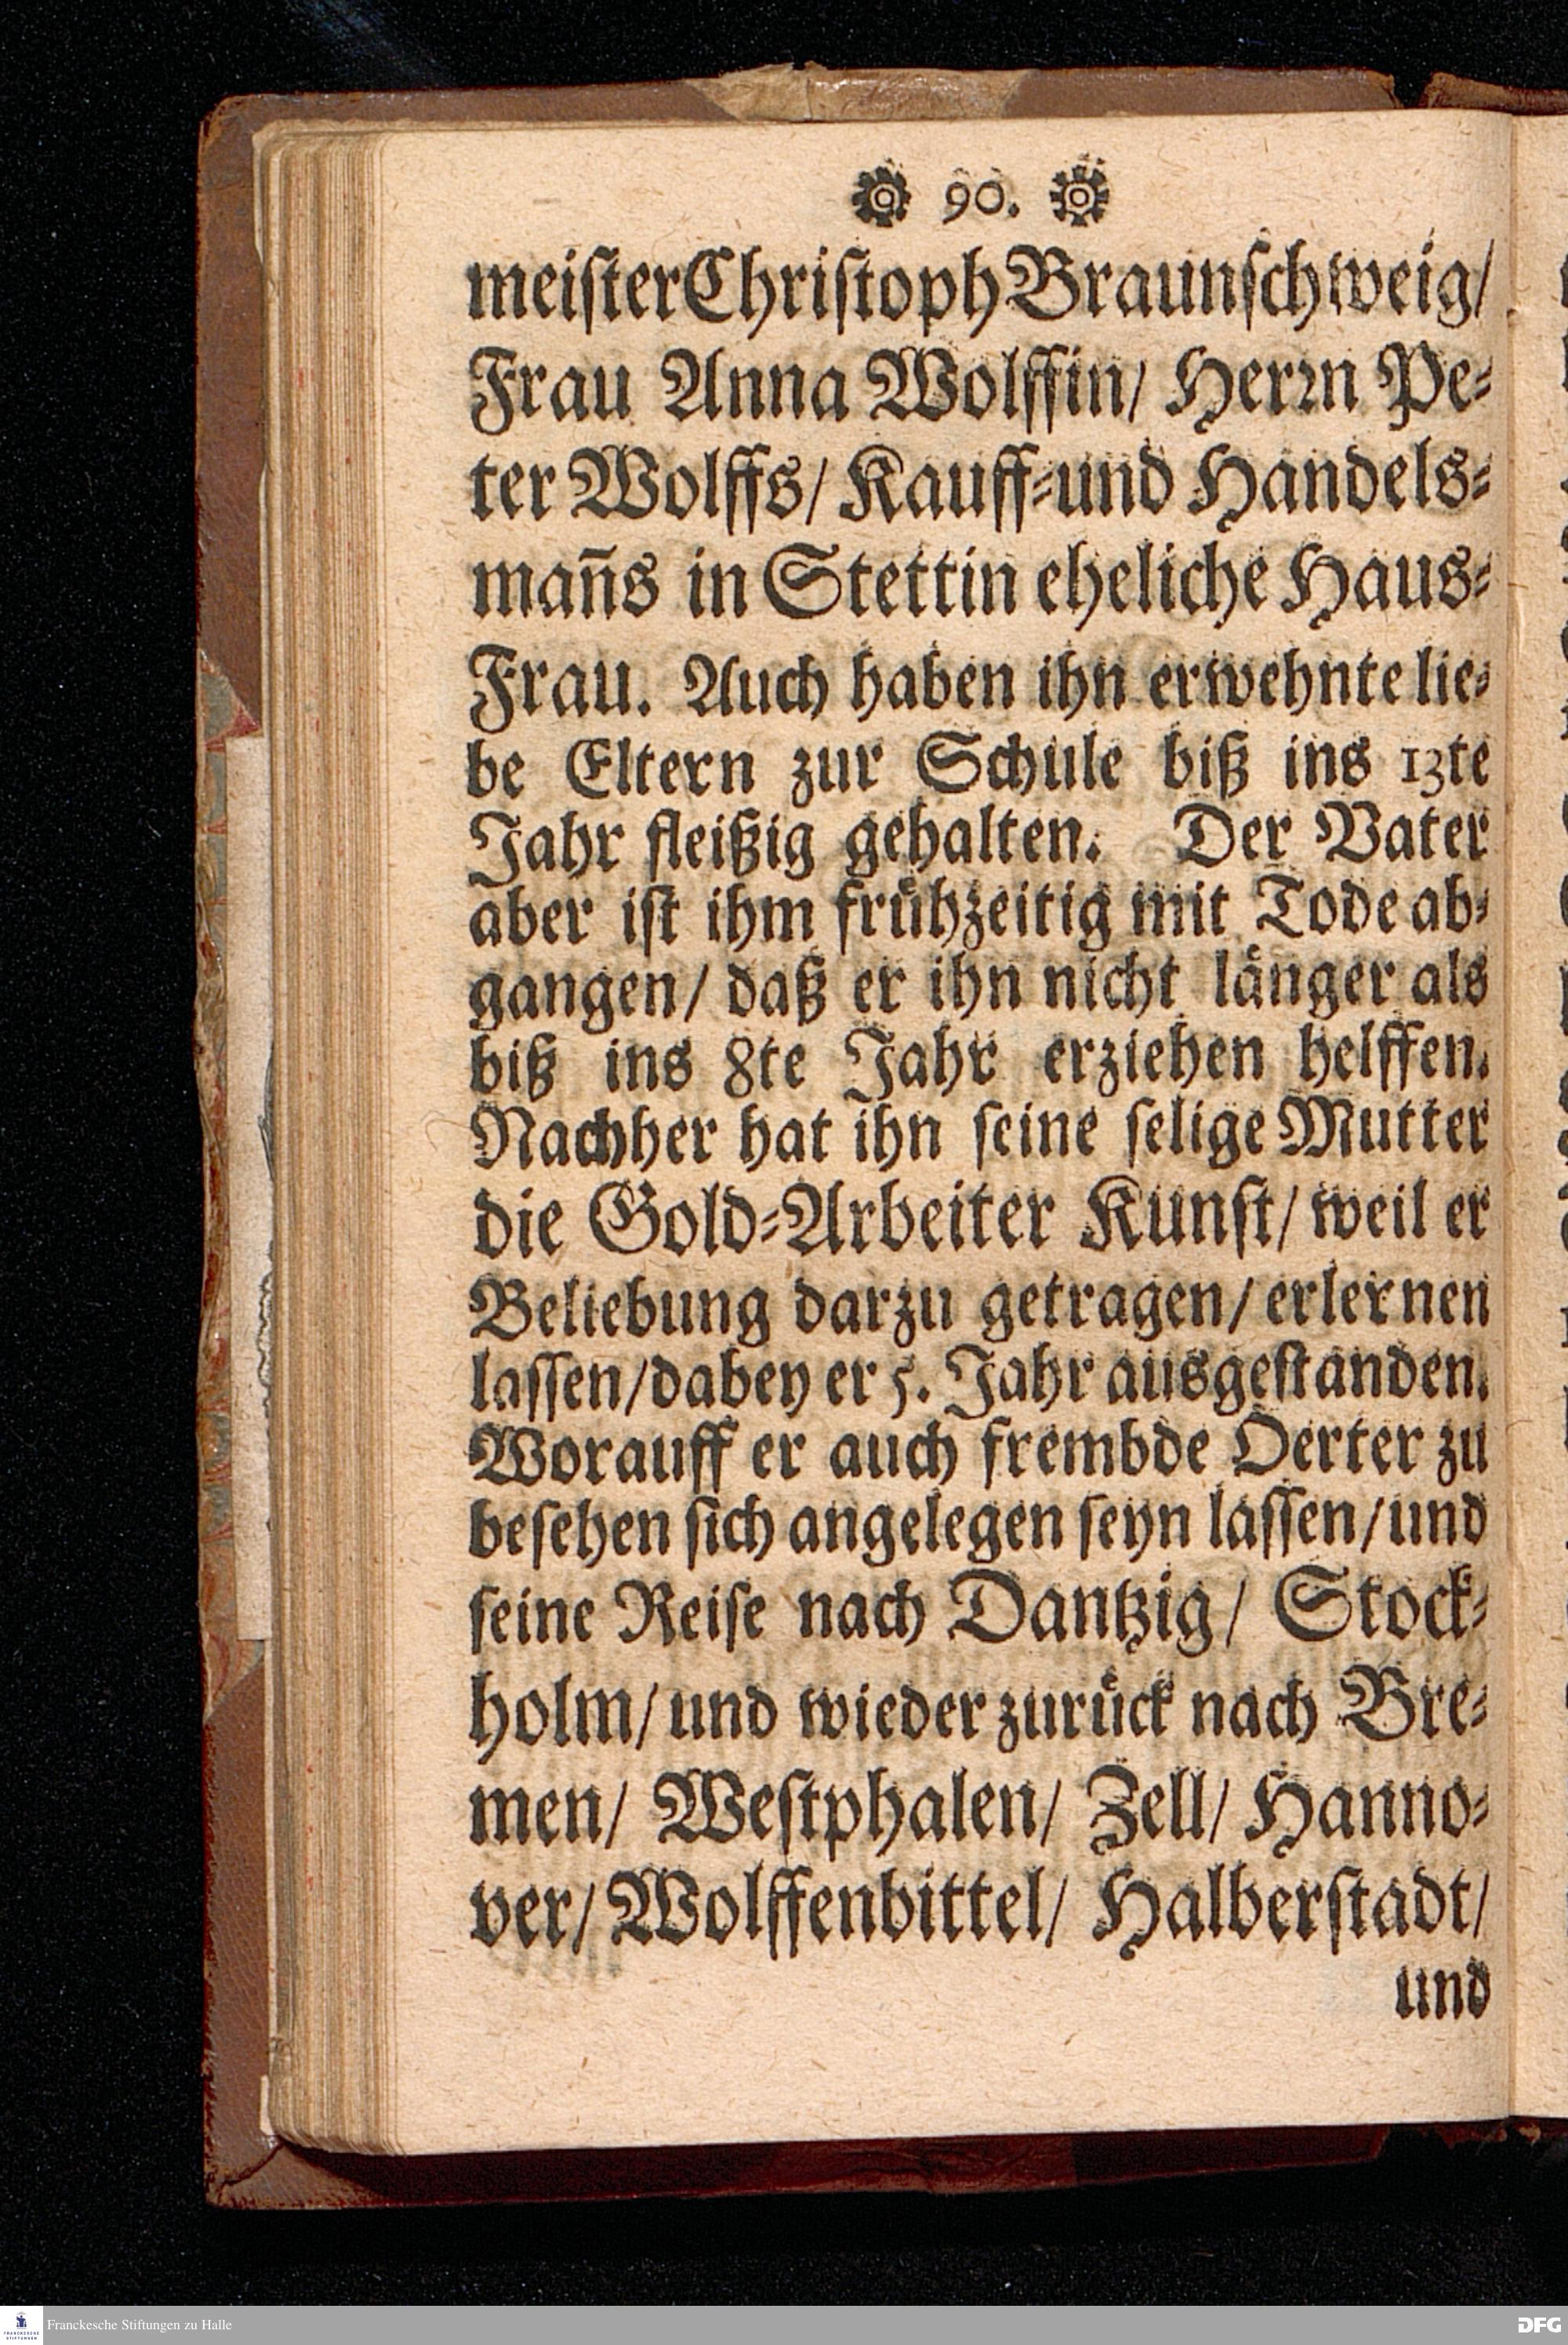 90.
meister Christoph Braunschweig/
Frau Anna Wolffin/ Herꝛn Pe⸗
ter Wolffs/ Kauff⸗und Handels⸗
mañs in Stettin eheliche Haus⸗
Frau. Auch haben ihn erwehnte lie⸗
be Eltern zur Schule biß ins 13te
Jahr fleißig gehalten. Der Vater
aber ist ihm frühzeitig mit Tode ab⸗
gangen/ daß er ihn nicht länger als
biß ins 8te Jahr erziehen helffen.
Nachher hat ihn seine selige Mutter
die Gold⸗Arbeiter Kunst/ weil er
Beliebung darzu getragen/ erlernen
lassen/ dabey er 5. Jahr ausgestanden.
Worauff er auch frembde Oerter zu
besehen sich angelegen seyn lassen/ und
seine Reise nach Dantzig/ Stock⸗
holm/ und wieder zurück nach Bre⸗
men/ Westphalen/ Zell/ Hanno⸗
ver/ Wolffenbittel/ Halberstadt/
und
FRANCKESCHE STIFTUNGEN
Franckesche Stiftungen zu Halle
DFG